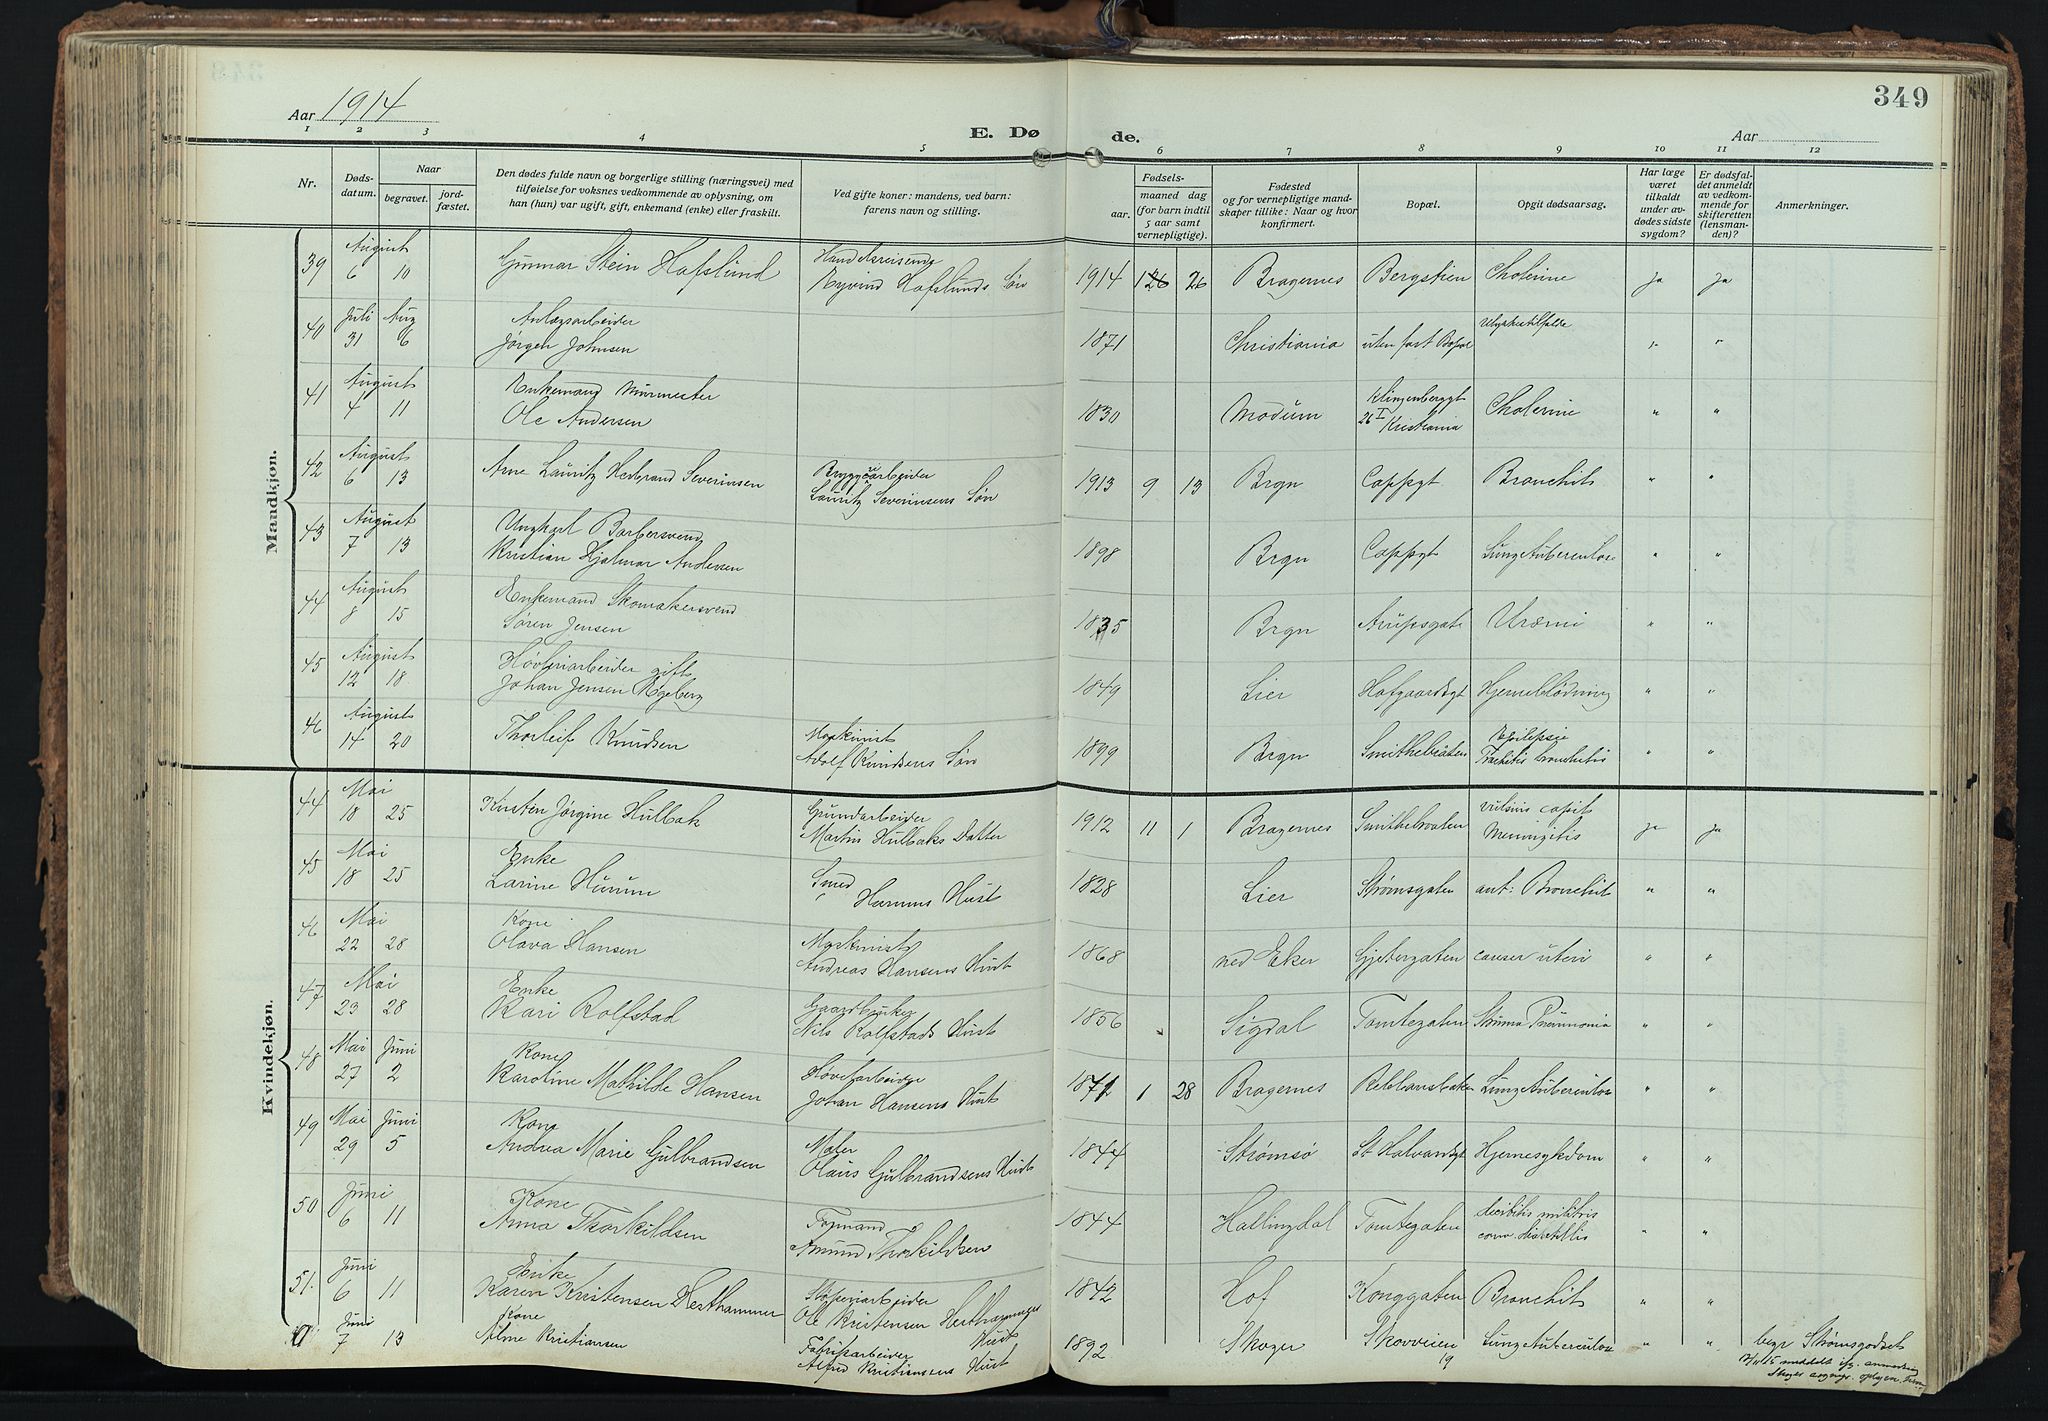 349
Aar 1914
E. Dø de.
Aar
1 2 3 4 5 6 7 8 9 10 11 12
Nr.
Døds-
datum.
Naar
begravet.
jord-
fæstet.
Den dødes fulde navn og borgerlige stilling (næringsvei) med
tilføielse for voksnes vedkommende av oplysning, om
han (hun) var ugift, gift, enkemand (enke) eller fraskilt.
Ved gifte koner: mandens, ved barn:
farens navn og stilling.
Fødsels-
aar.
maaned dag
(for barn indtil
5 aar samt
vernepligtige).
Fødested
og for vernepligtige mand-
skaper tillike: Naar og hvor
konfirmert.
Bopæl.
Opgit dødsaarsag.
Har læge
været
tilkaldt
under av-
dødes sidste
sygdom?
Er dødsfal-
det anmeldt
av vedkom-
mende for
skifteretten
(lensman-
den)?
Anmerkninger.
Mandkjøn.
39 August 6 10 Gunnar Stein Hafslund Handelsreisende
Eyvind Hafslunds Søn 1914 26 Bragernes Bergstien Cholerine ja ja
40 Juli 31 Aug 6 Anlægsarbeider
Jørgen Johnsen 1871 Christiania uten fast Bopæl Ulykkestilfælde " "
41 August 4 11 Enkemand Murmester
Ole Andersen 1830 Modum Klingenberggt
26 I Kristiania Cholerine " "
42 August 6 13 Arne Lauritz Herbrand Severinsen Bryggearbeider
Lauritz Severinsens Søn 1913 9 13 Brgn Cappgt Bronchit " "
43 August 7 13 Ungkarl Barbersvend
Kristian Hjalmar Andersen 1898 Brgn Cappgt Lungetuberculose " "
44 August 8 15 Enkemand Skomakersvend
Søren Jensen 1835 Brgn Arupsgate Uræmi " "
45 August 12 18 Høvleriarbeider gift
Johan Jensen Egeberg 1849 Lier Hofgaardsgt Hjerneblødning " "
46 August 14 20 Thorleif Knudsen Maskinist
Adolf Knudsens Søn 1899 Brgn Smithebraaten Epilepsie
Bronchitis " "
Kvindekjøn.
44 Mai 18 25 Kirsten Jørgine Hulbak Grundarbeider
Martin Hulbaks Datter 1912 11 1 Bragernes Smithebraaten capit
Meningitis ja ja
45 Mai 18 25 Enke
Larine Hurum Smed
Hurums Hust 1828 Lier Strømsgaten Bronchit " "
46 Mai 22 28 Kone
Olava Hansen Maskinist
Andreas Hansens Hust 1868 ned Eker Gjetergaten cancer uteri " "
47 Mai 23 28 Enke
Kari Rolfstad Gaardbruker
Nils Rolfstads Hust 1856 Sigdal Tomtegaten Struma Pneumonia " "
48 Mai 27 Juni 2 Kone
Karoline Mathilde Hansen Høvlarbeider
Johan Hansens Hust 1871 1 28 Bragernes Rebbansbakken Lungetuberculose " "
49 Mai 29 Juni 5 Kone
Andrea Marie Gulbrandsen Maler
Olaus Gulbrandsens Hust 1844 Strømsø St Halvardsgt Hjernesykdom " "
50 Juni 6 11 Kone
Anna Thorkildsen Formand
Amund Thorkildsens 1844 Hallingdal Tomtegaten
coma " "
51. Juni 6 11 Enke
Karen Kristensen Hesthammer Støperiarbeider
Ole Kristensen Hesthammers
Hust 1842 Hof Konggaten Bronchit " "
Juni 7 13 Kone
Alma Kristiansen Fabrikarbeider
Alfred Kristiansens Hust 1892 Skoger Skovveien
19 Lungetuberculose " " begr Strømsgodset